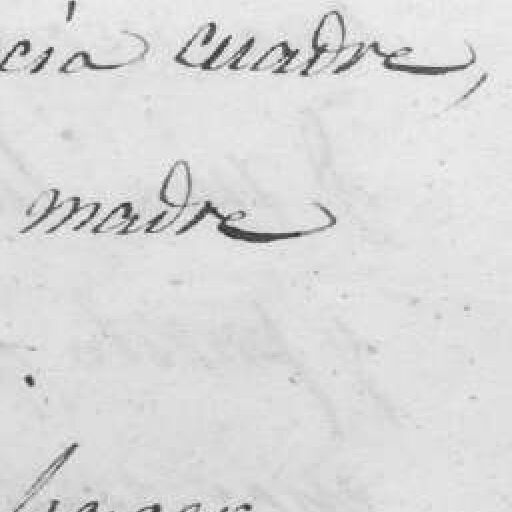 cia cuadre,
madre
.